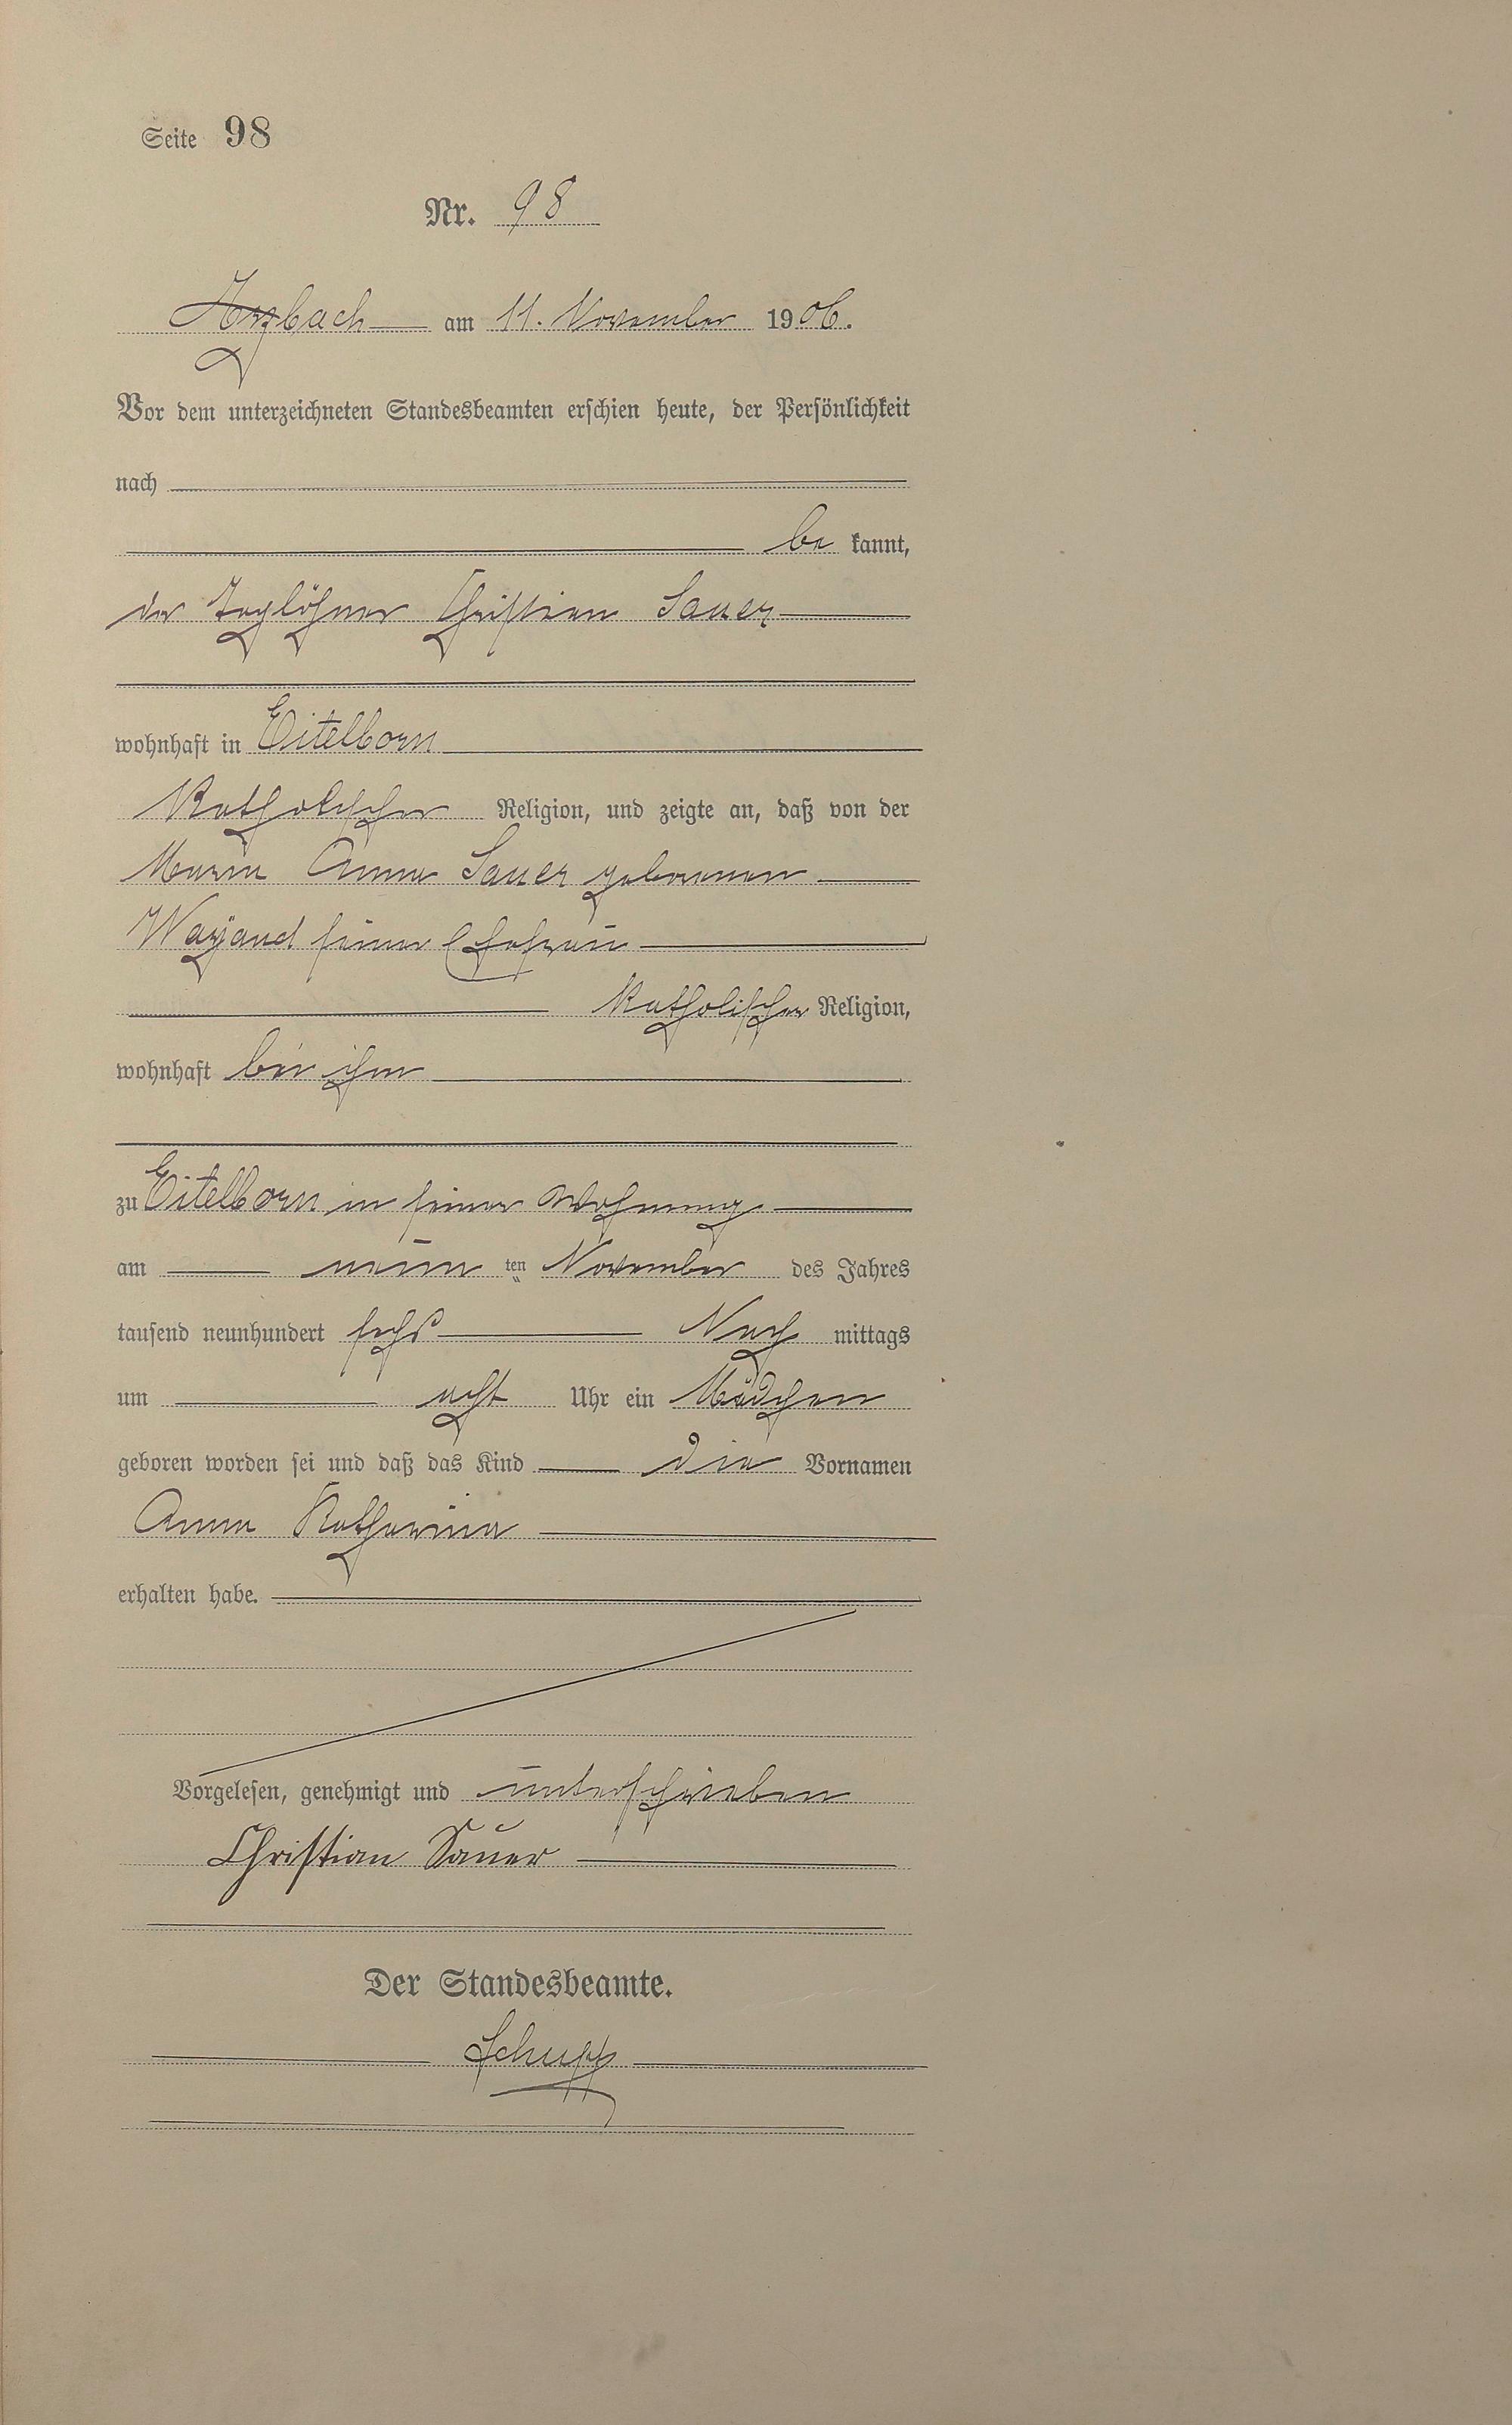 Seite 98
Nr. 98
Arzbach am 11. November 1906.
Vor dem unterzeichneten Standesbeamten erschien heute, der Persönlichkeit
nach
be kannt,
der Taglöhner Christian Sauer
wohnhaft in Eitelborn
Katholischer Religion, und zeigte an, daß von der
Maria Anna Sauer geborenen
Wayand seiner Ehefrau
Katholischer Religion,
wohnhaft bei ihm
zu Eitelborn in seiner Wohnung
am neun ten November des Jahres
tausend neunhundert sechs Nach mittags
um acht Uhr ein Mädchen
geboren worden sei und daß das Kind die Vornamen
Anna Katharina
erhalten habe.
Vorgelesen, genehmigt und unterschrieben
Christian Sauer
Der Standesbeamte.
Schupp